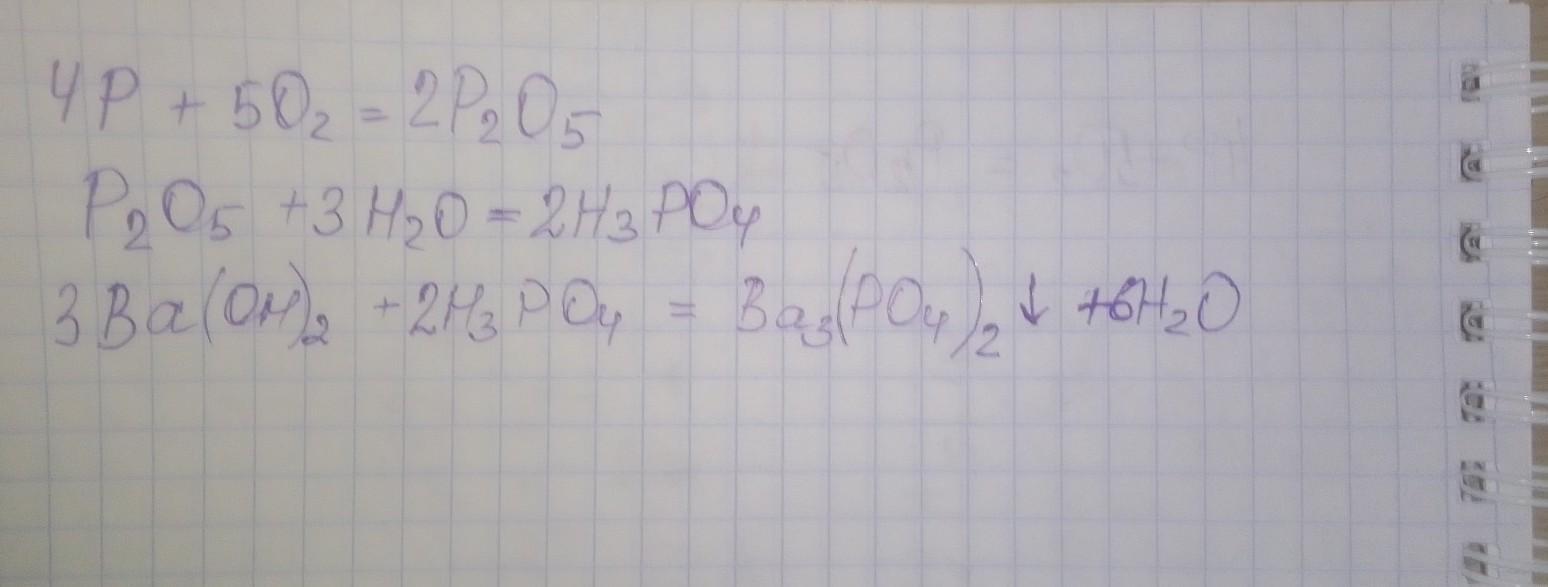 4P + 5O₂ = 2P₂O₅
P₂O₅ + 3H₂O = 2H₃PO₄
3Ba(OH)₂ + 2H₃PO₄ = Ba₃(PO₄)₂↓ + 6H₂O